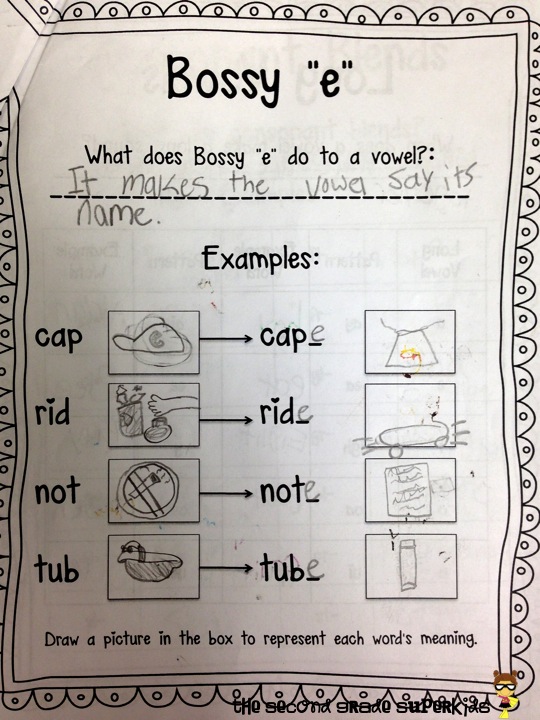 Bossy "e"
What does Bossy "e" do to a vowel?:
It makes the vowel say its
name.
Examples:
cap cape
rid ride
not note
tub tube
Draw a picture in the box to represent each word's meaning.
the second grade superkids